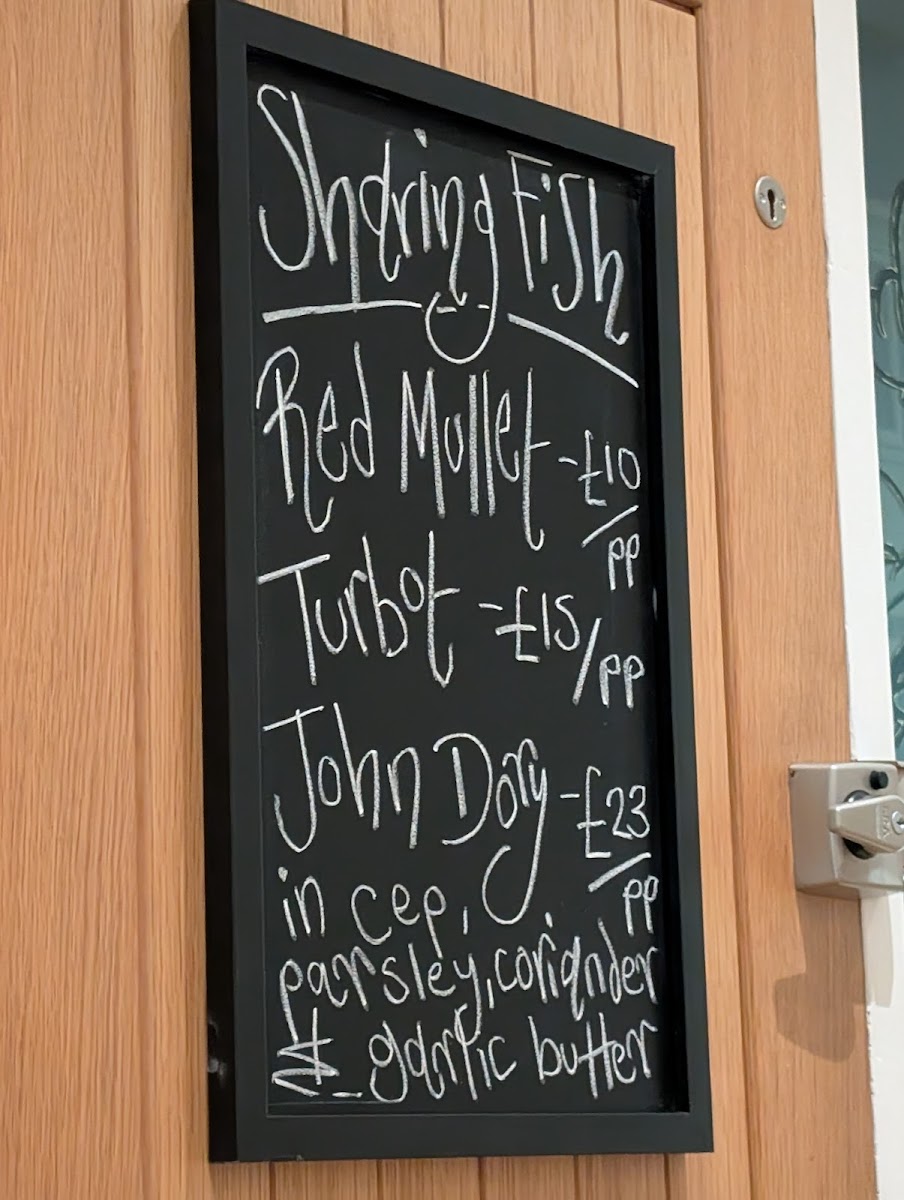 Sharing Fish
Red Mullet - £10/pp
Turbot - £15/pp
John Dory - £23/pp
in cep,
parsley, coriander
& garlic butter